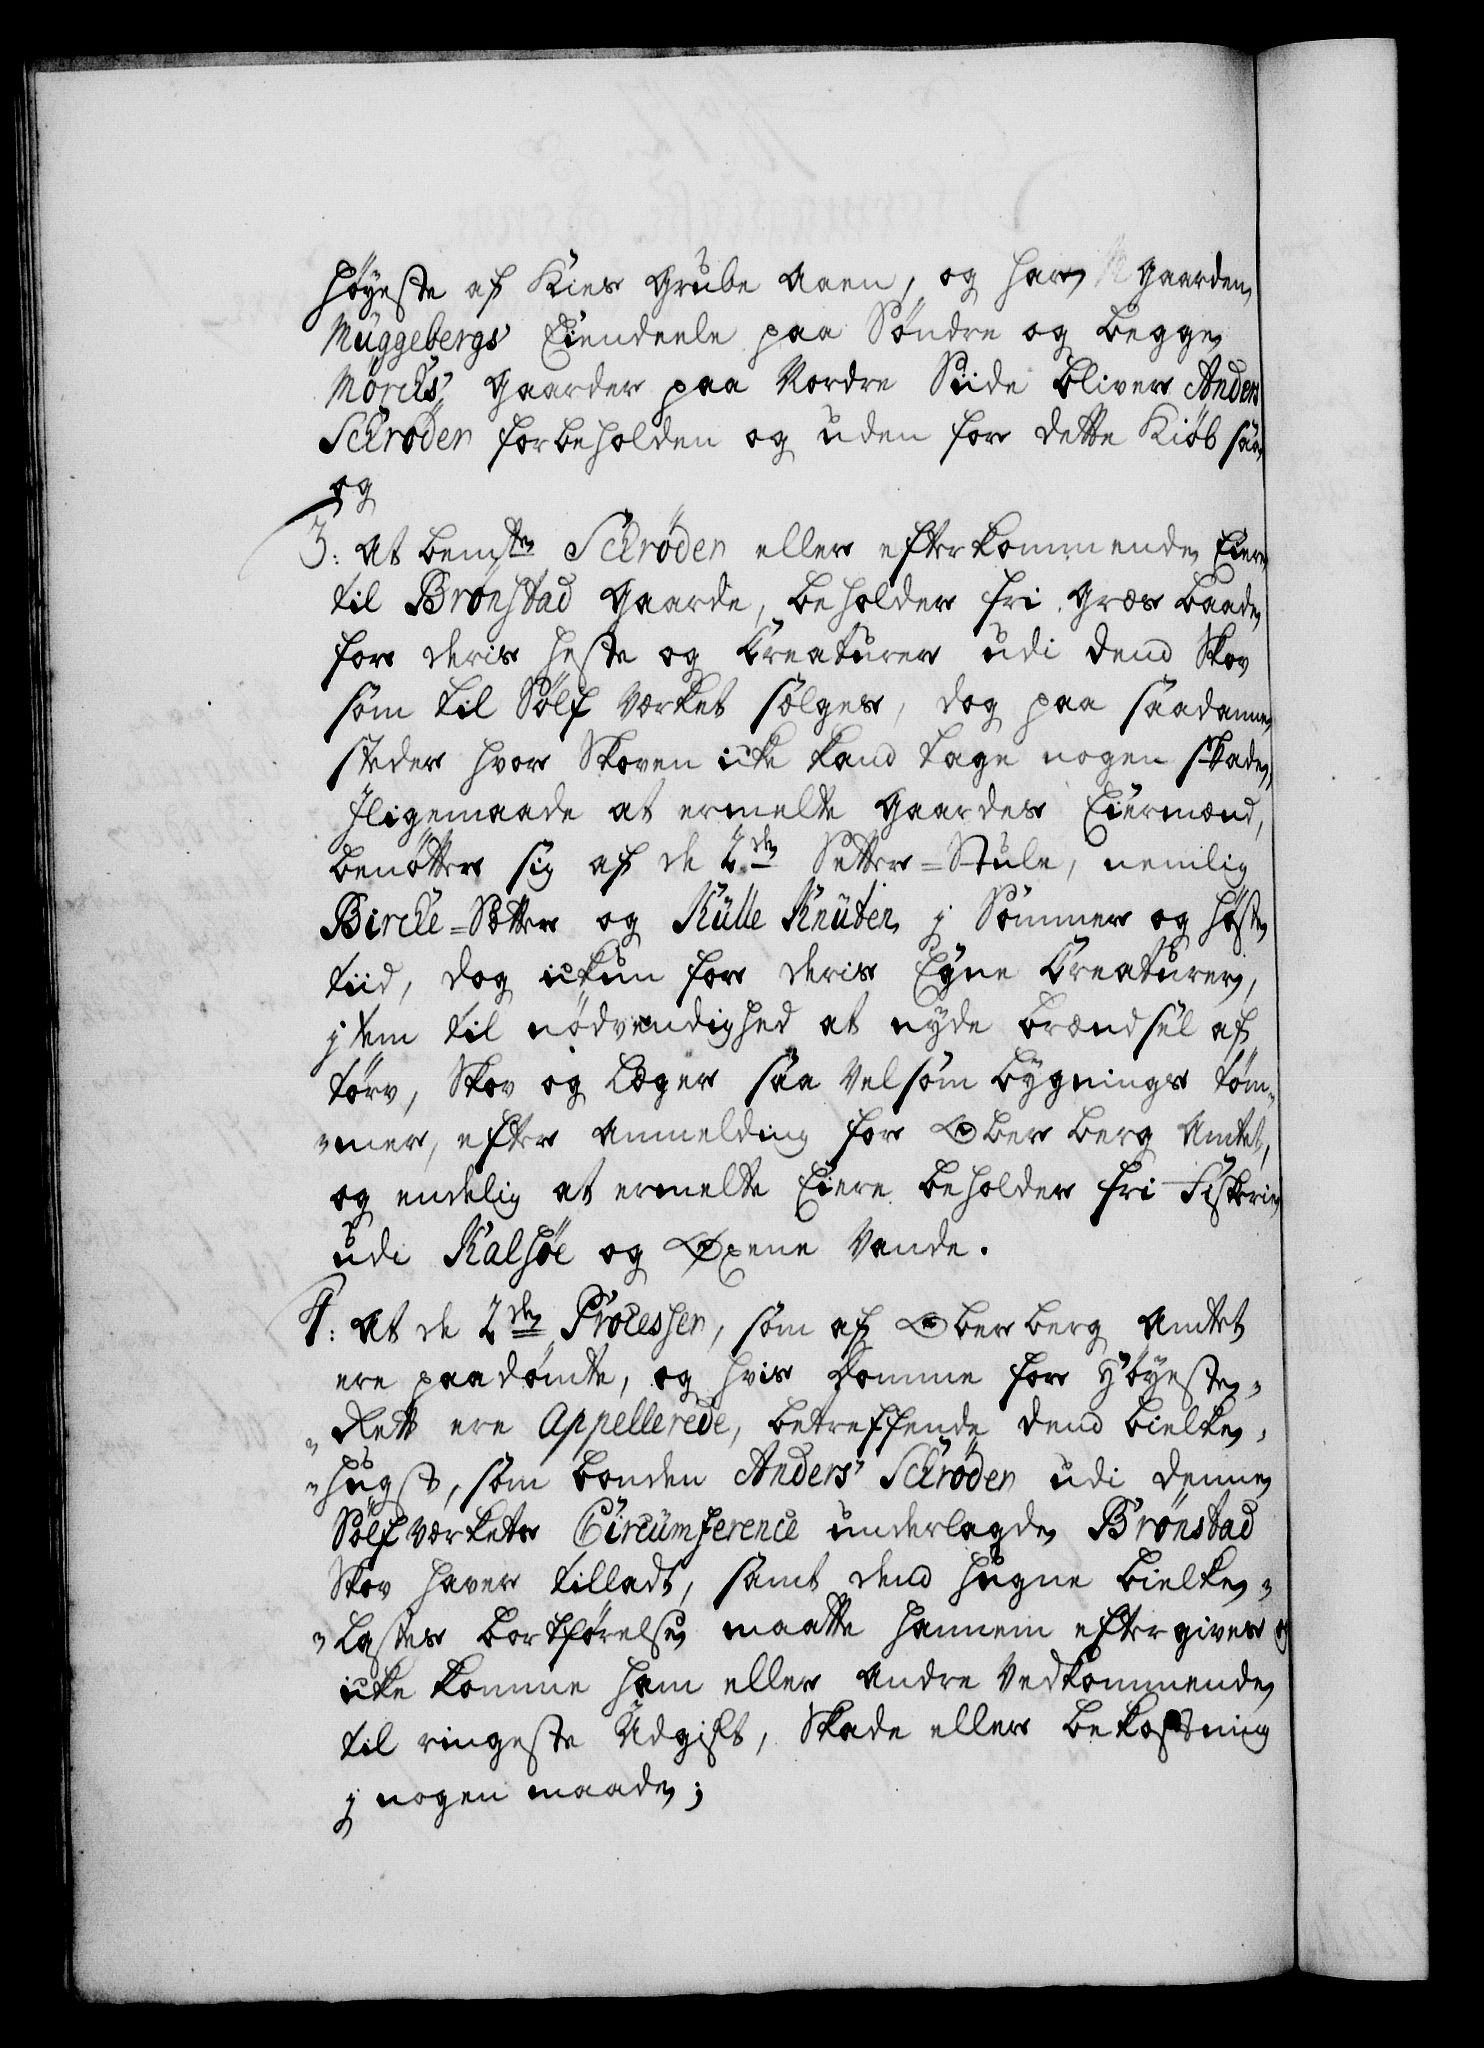 Høyeste af Kies Grube Aaen, og har Gaarden
Muggebergs Eiendeele paa Søndre og begge
Mörchs Gaarder paa Nordre Siide bliver Anders
Schrøder forbeholden og uden for dette Kiøb saa,
og
3: At bemte Schrøder eller efterkommende Eiere
til Brønstad Gaarde, beholder fri Græs baade
for deris Heste og Creaturer udi dend Skov
som til Sølf Værket sælges, dog paa saadanne
steder hvor Skoven icke kand tage nogen Skade,
Jligemaade at ermelte Gaardes Eiermænd,
benøtter sig af de 2de Setter=Stule, nemlig
Bircke=Sætter og Kulle Knuten j Sommer og høste
tiid, dog ickun for deris Egne Creaturer,
jtem til nødvendighed at nyde brændsel af
törv, Skov og Læger saa velsom bygnings töm-
-mer, efter Anmelding for Ober berg Amtet,
og endelig at ermelte Eiere beholder fri Fiskerie
udi Kalsøe og Øxene Vande.
4: At de 2de Processer, som af Ober berg Amtet
ere paadømte, og hvis Domme for Høyeste-
-Rett ere Appellerede, betreffende dend bielke-
-hugst, som bonden Anders Schrøder udi denne
Sølf Værkets Circumference underlagde Brønstad
Skov haver tilladt, samt dend hugne bielke-
-Lastes bortførelse maatte hannem eftergives og
icke komme ham eller andre Vedkommende
til ringeste Udgift, Skade eller bekostning
j nogen maade;